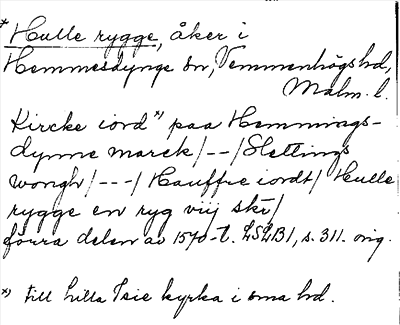 * Hulle rygge, åker i
Hemmesdynge sn, Vemmenhögs hd,
Malm. l.
Kircke iord *) paa Hemmings-
dynne marck /--/ Slettings
wongh /---/ Hauffre iordt / Hulle
rygge en ryg viij skr /
förra delen av 1570-t. LSLB1, s. 311. orig.
*) till Lilla Isie kyrka i sma hd.